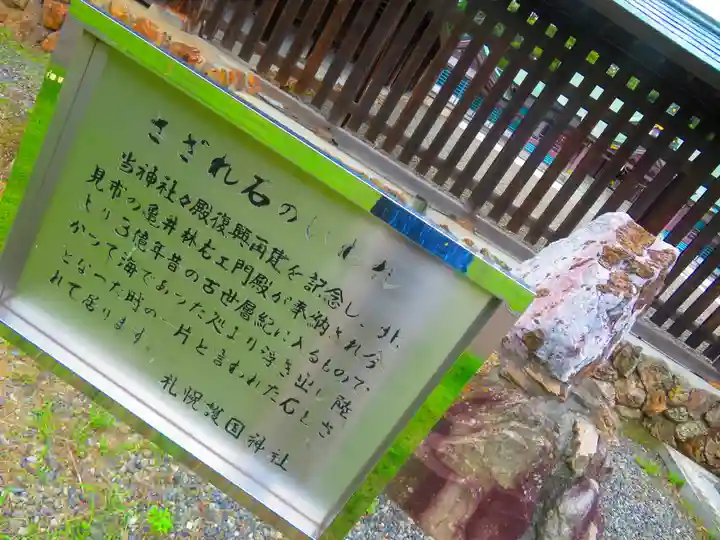 さざれ石のいわれ
当神社々殿復興再建を記念し、北
見市の亀井林右エ門殿が奉納され今
より三億年昔の古世層紀に入るもので、
かつて海であった処より浮き出し陸
となった時の一片と言われた石とさ
れて居ります。
札幌護国神社